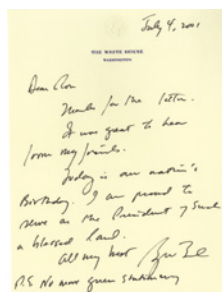 July 4, 2001
THE WHITE HOUSE
WASHINGTON
Dear Ron
Thanks for the letter.
It was great to hear
from my friends.
Today is our nation's
Birthday. I am proud to
serve as the President of such
a blessed land.
All my best
P.S. No more green stationery